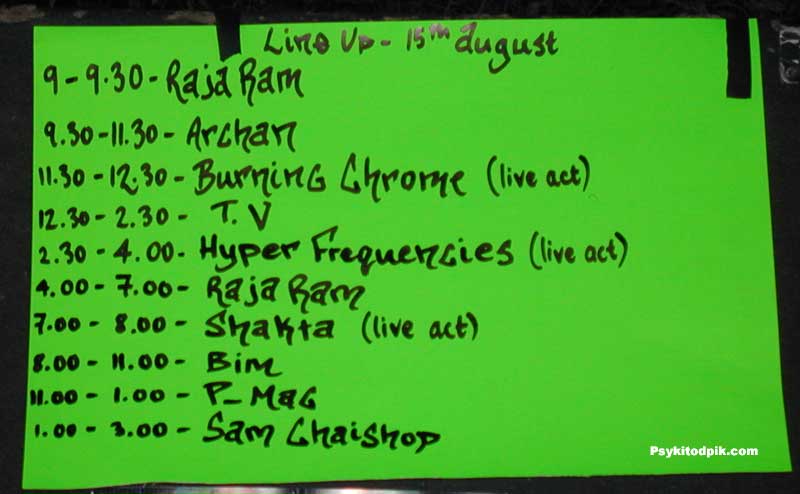 Line Up - 15th august
9 - 9.30 - Raja Ram
9.30 - 11.30 - Archan
11.30 - 12.30 - Burning Chrome (live act)
12.30 - 2.30 - T.V
2.30 - 4.00 - Hyper Frequencies (live act)
4.00 - 7.00 - Raja Ram
7.00 - 8.00 - Shakta (live act)
8.00 - 11.00 - Bim
11.00 - 1.00 - P-Mac
1.00 - 3.00 - Sam Chaishop
Psykitodpik.com